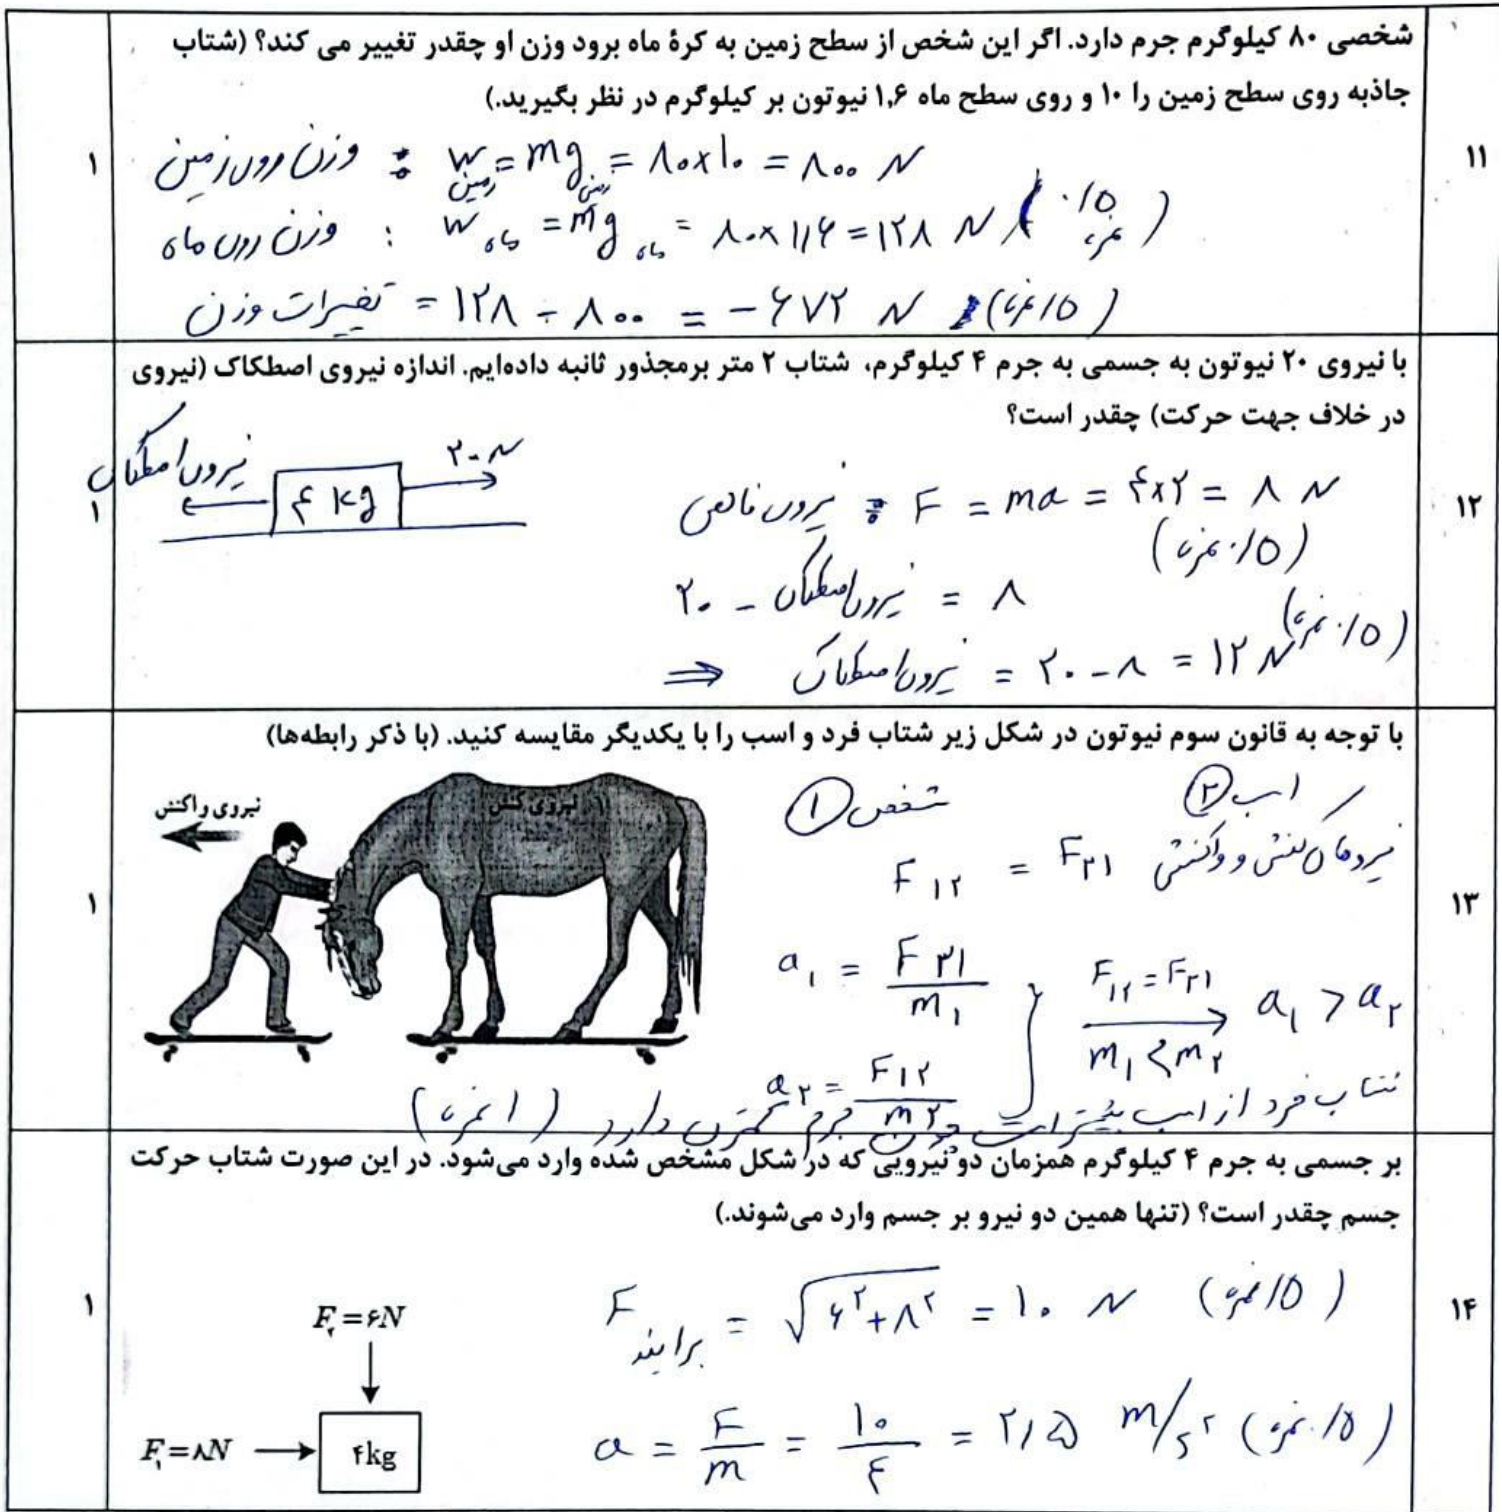 ۱۱
شخصی ۸۰ کیلوگرم جرم دارد. اگر این شخص از سطح زمین به کرۀ ماه برود وزن او چقدر تغییر می کند؟ (شتاب
جاذبه روی سطح زمین را ۱۰ و روی سطح ماه ۱,۶ نیوتون بر کیلوگرم در نظر بگیرید.)
۱
وزن روی زمین : W زمین = mg زمین = ۸۰×۱۰ = ۸۰۰ N
وزن روی ماه : W ماه = mg ماه = ۸۰×۱/۶ = ۱۲۸ N (۰/۵ نمره)
تغییرات وزن = ۱۲۸ - ۸۰۰ = -۶۷۲ N (۰/۵ نمره)
۱۲
با نیروی ۲۰ نیوتون به جسمی به جرم ۴ کیلوگرم، شتاب ۲ متر برمجذور ثانیه داده‌ایم. اندازه نیروی اصطکاک (نیروی
در خلاف جهت حرکت) چقدر است؟
۱
نیروی اصطکاک
۴ kg
۲۰ N
نیروی خالص : F = ma = ۴×۲ = ۸ N
(۰/۵ نمره)
۲۰ - نیروی اصطکاک = ۸
⇒ نیروی اصطکاک = ۲۰ - ۸ = ۱۲ N (۰/۵ نمره)
۱۳
با توجه به قانون سوم نیوتون در شکل زیر شتاب فرد و اسب را با یکدیگر مقایسه کنید. (با ذکر رابطه‌ها)
۱
نیروی واکنش
نیروی کنش
شخص ۱ اسب ۲
نیروهای کنش و واکنش F۱۲ = F۲۱
a۱ = F۲۱/m۱
a۲ = F۱۲/m۲
F۱۲ = F۲۱
m۱ < m۲
a۱ > a۲
شتاب فرد از اسب بیشتر است چون جرم کمتری دارد (۱ نمره)
۱۴
بر جسمی به جرم ۴ کیلوگرم همزمان دو نیرویی که در شکل مشخص شده وارد می‌شود. در این صورت شتاب حرکت
جسم چقدر است؟ (تنها همین دو نیرو بر جسم وارد می‌شوند.)
۱
F۲=۶N
F۱=۸N
۴kg
F برایند = √۶²+۸² = ۱۰ N (۰/۵ نمره)
a = F/m = ۱۰/۴ = ۲/۵ m/s² (۰/۵ نمره)